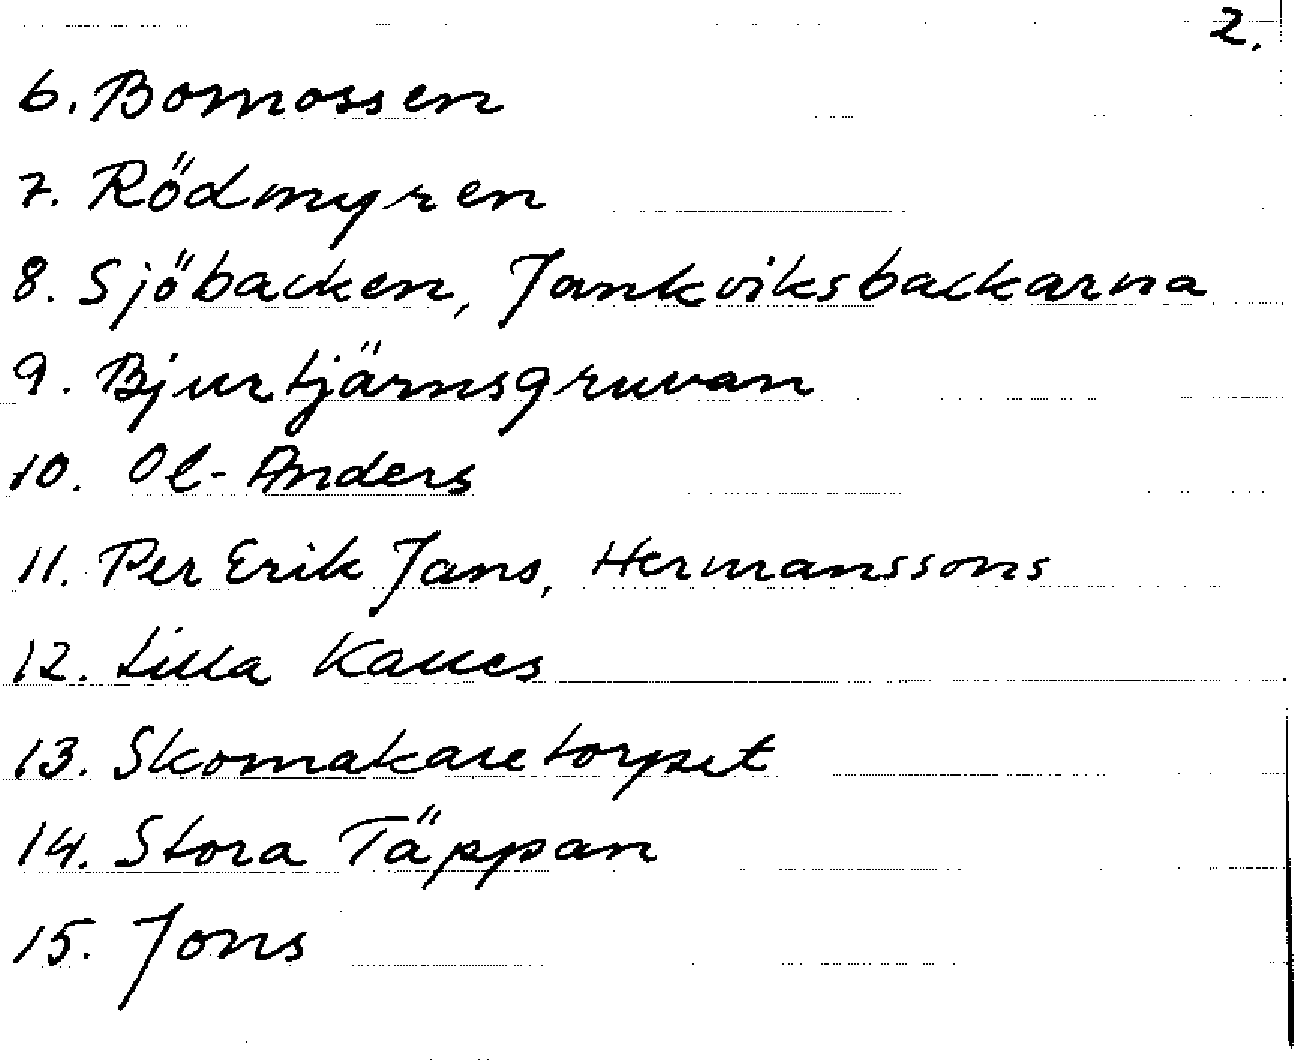 2.
6. Bomossen
7. Rödmyren
8. Sjöbacken, Jankviksbackarna
9. Bjurtjärnsgruvan
10. Ol-Anders
11. Per Erik Jans, Hermanssons
12. Lilla Kalles
13. Skomakaretorpet
14. Stora Täppan
15. Jons